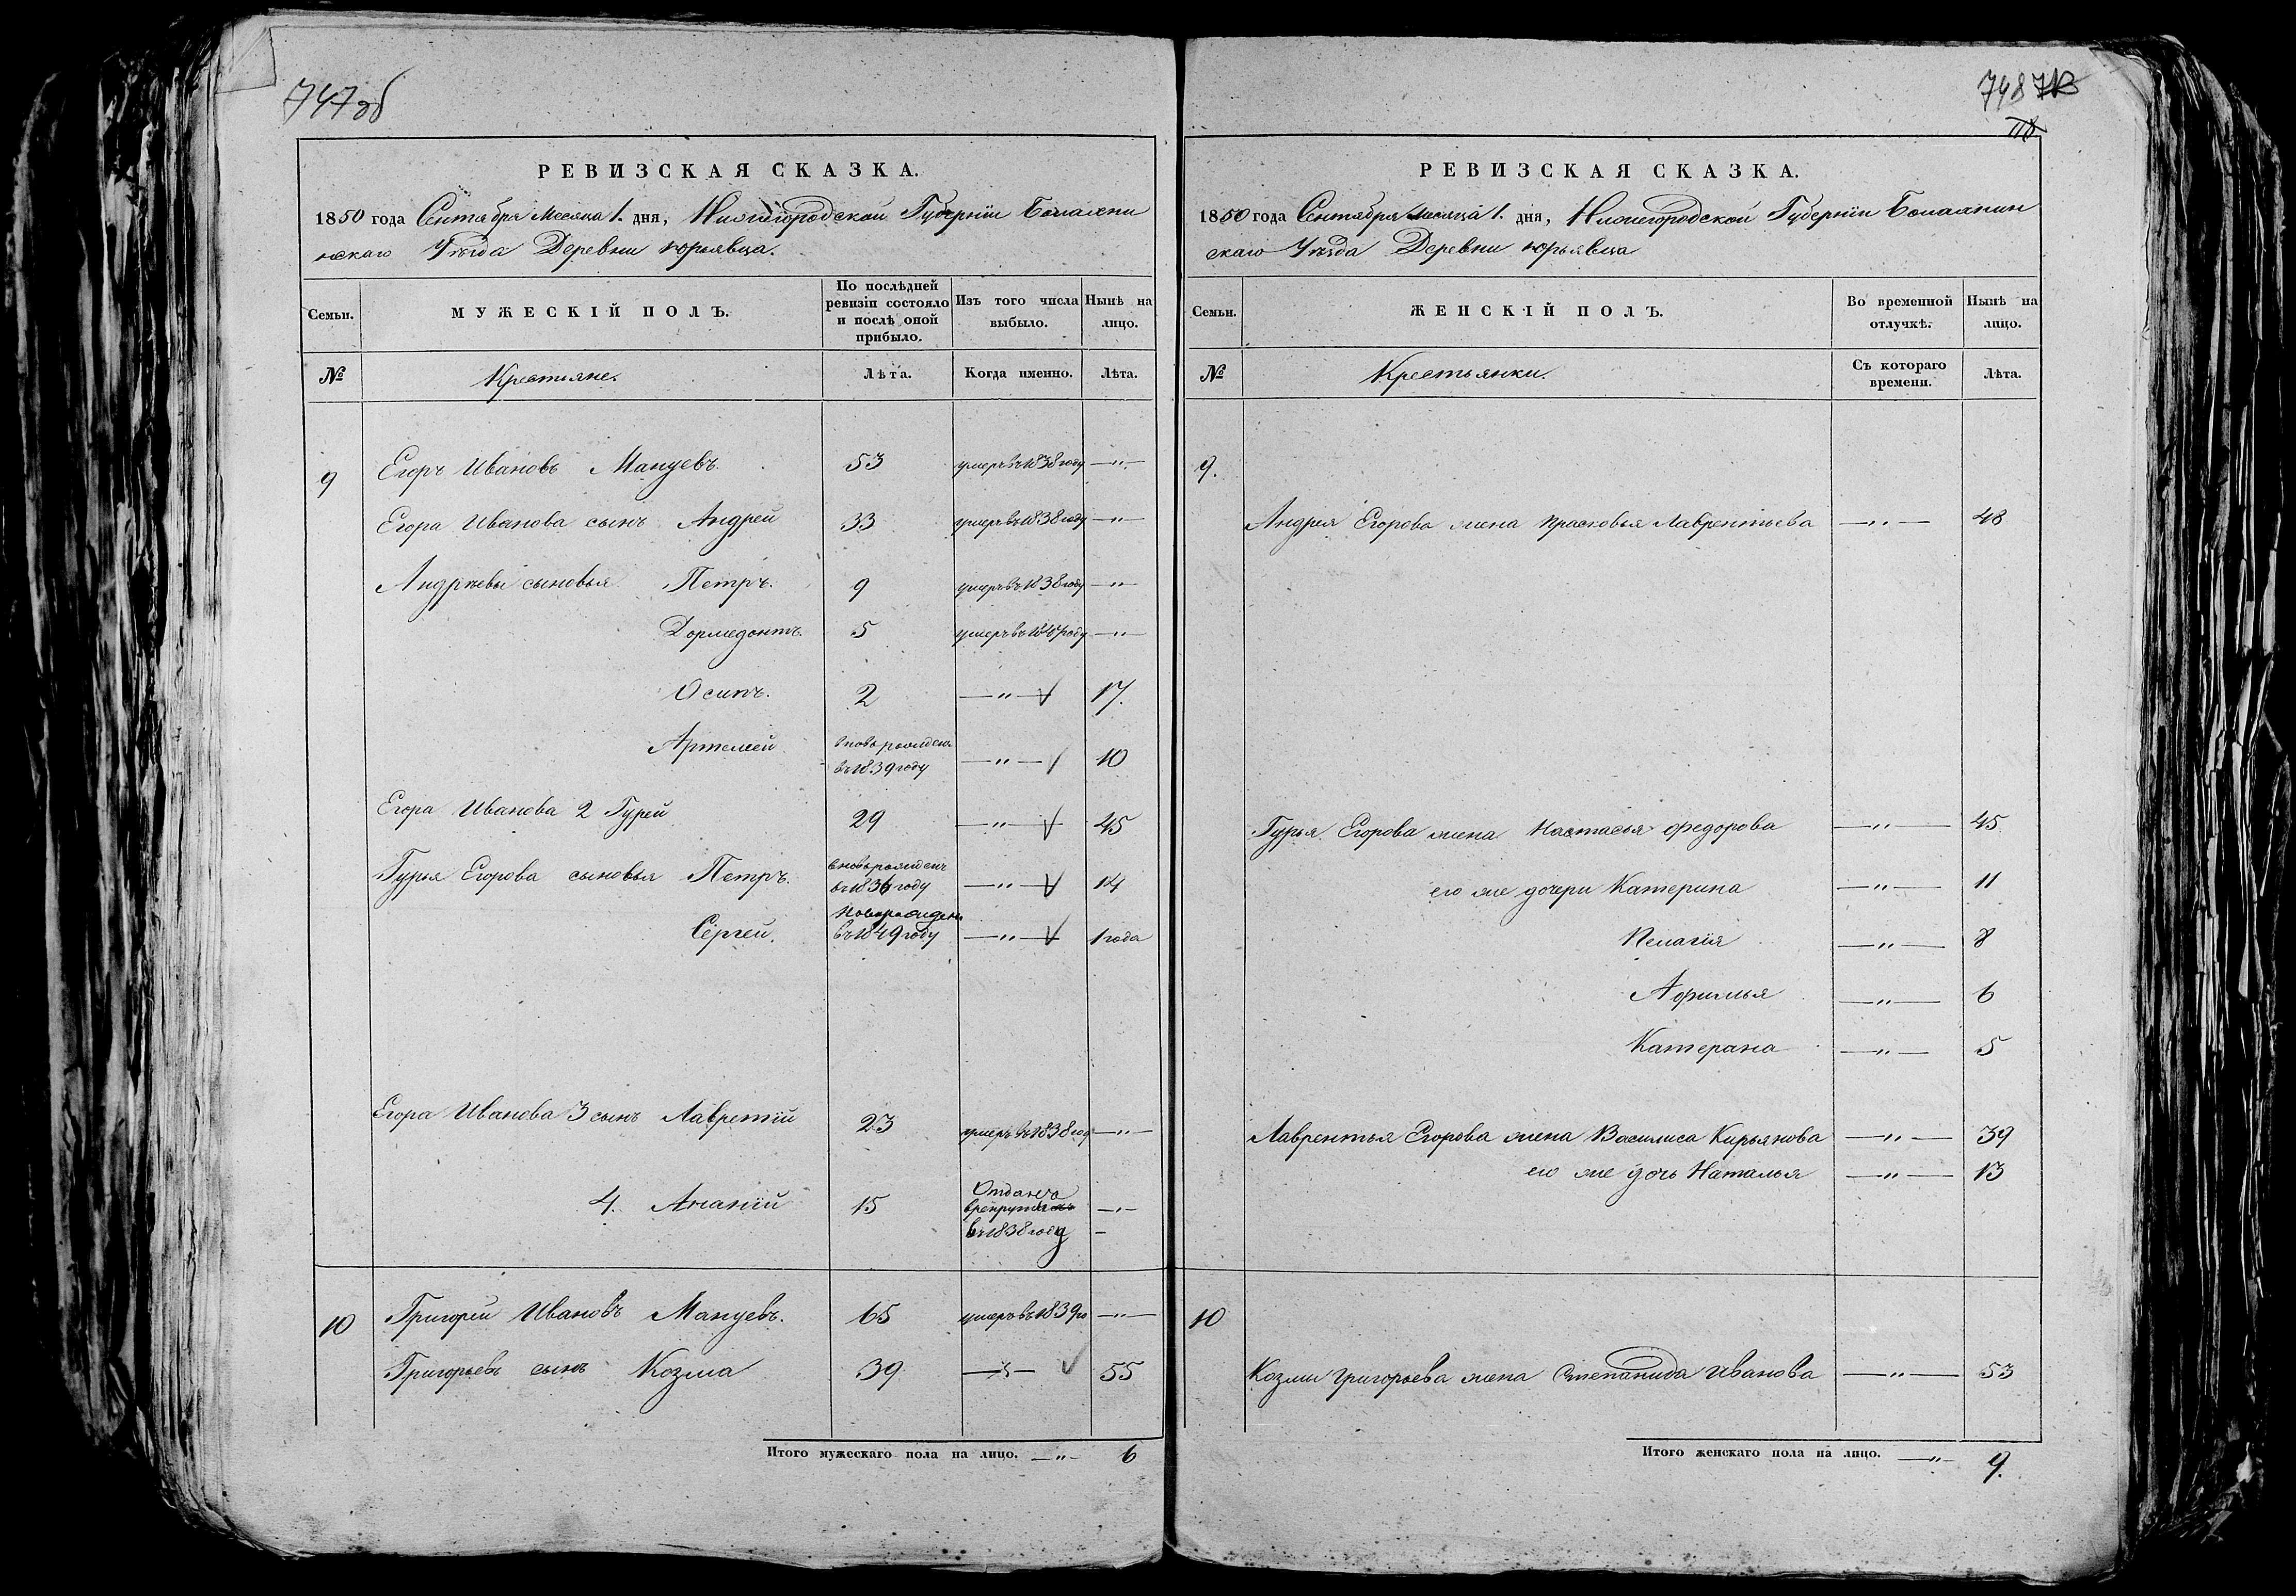 747об
РЕВИЗСКАЯ СКАЗКА.
1850 года Сентября Месяца 1. дня, Нижегородской Губернiи Балахни
нскаго Уѣзда Деревни юрьявца.
Семьи.
МУЖЕСКІЙ ПОЛЪ.
По послѣдней ревизіи состояло и послѣ оной прибыло.
Изъ того числа выбыло.
Нынѣ на лицо.
№
Крестьяне.
Лѣта.
Когда именно.
Лѣта.
9 Егоръ Ивановъ Мануевъ. 53 умеръ въ 1838 году —"—
Егора Иванова сынъ Андрей 33 умеръ въ 1838 году —"—
Андрѣевы сыновья Петръ. 9 умеръ въ 1838 году —"—
Дормедонтъ. 5 умеръ въ году —"—
Осипъ. 2 —"— 17.
Артемей вновь рожденъ въ 1839 году —"— 10
Егора Иванова 2 Гурей 29 —"— 45
Гурья Егорова сыновья Петръ. вновь рожденъ въ 1836 году —"— 14
Сергей. Новорожденъ въ 1849 году —"— 1 года
Егора Иванова 3 сынъ Лавретій 23 умеръ въ 1838 год —"—
4. Ананій 15 Отданъ в рекруты въ 1838 году —"—
10 Григорей Ивановъ Мануевъ. 65 умеръ въ 1839 го —"—
Григорьевъ сынъ Козма 39 —"— 55
Итого мужескаго пола на лицо. —"— 6
748
РЕВИЗСКАЯ СКАЗКА.
1850 года Сентября Месяца 1. дня, Нижегородской Губернiи Балахнин
скаго Уѣзда Деревни юрьявца
Семьи.
ЖЕНСКІЙ ПОЛЪ.
Во временной отлучкѣ.
Нынѣ на лицо.
№
Крестьянки.
Съ котораго времени.
Лѣта.
9.
Андрея Егорова жена Прасковья Лаврентьева —"— 48
Гурья Егорова жена Настасья федорова —"— 45
его же дочери Катерина —"— 11
Пелагія —"— 8
Афимья —"— 6
Катерана —"— 5
Лаврентья Егорова жена Василиса Кирьянова —"— 39
его же дочь Наталья —"— 13
10
Козмы Григорьева жена Степанида Иванова —"— 53
Итого женскаго пола на лицо. —"— 9.